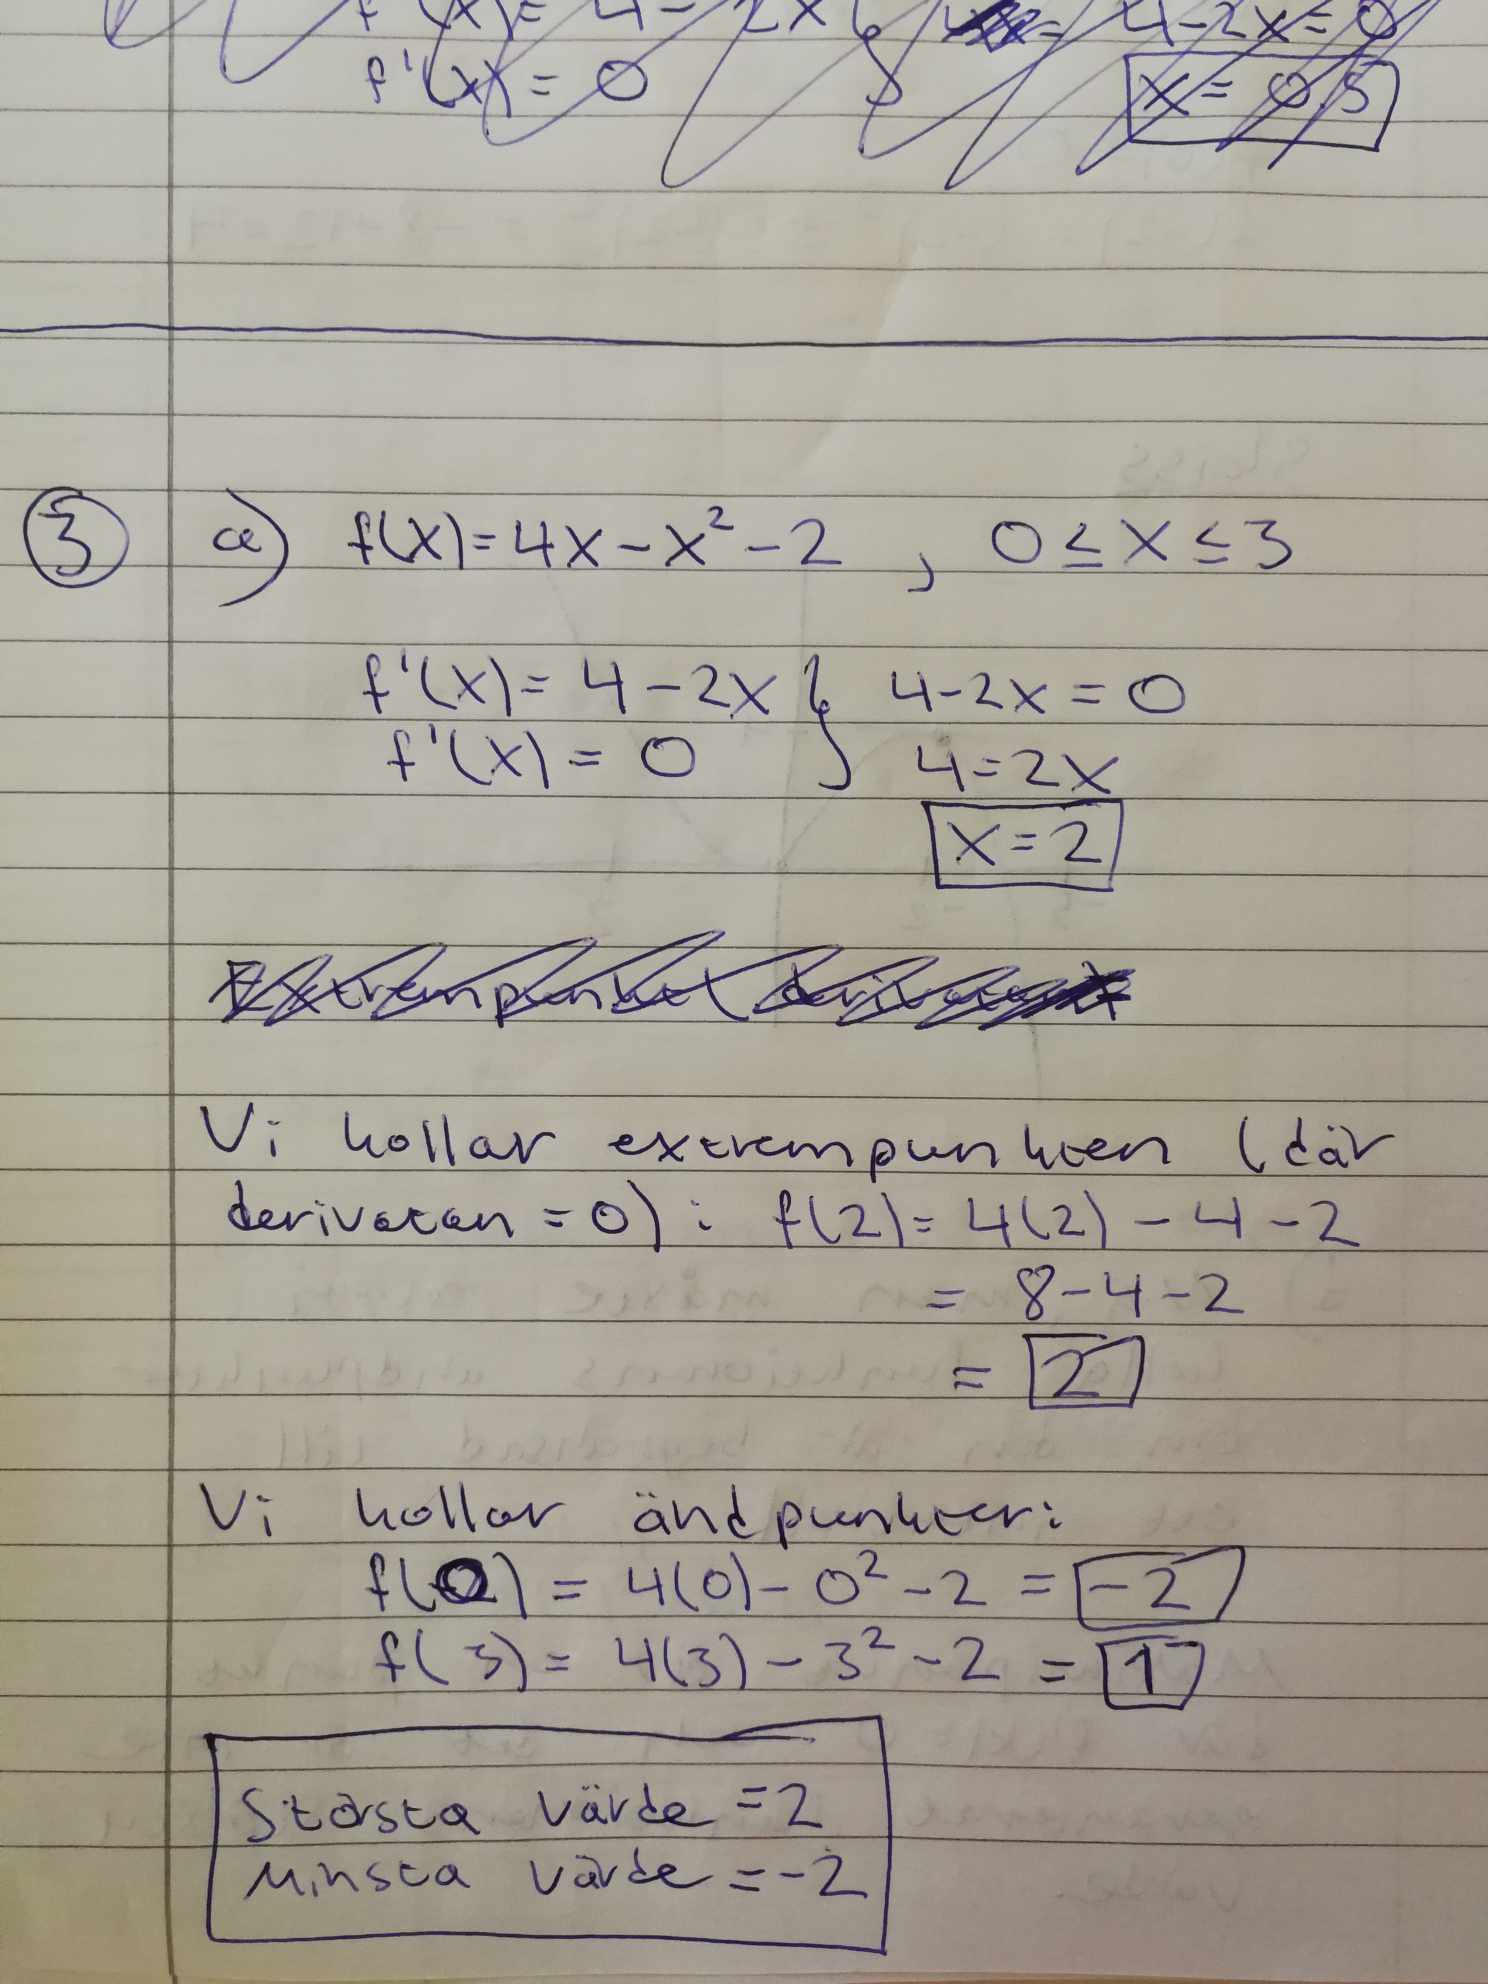 f'(x) = 4 - 2x } 4-2x=0
f'(x) = 0 x = 0.5
3 a) f(x)=4x-x²-2 , 0≤x≤3
f'(x)= 4-2x } 4-2x=0
f'(x) = 0 4=2x
x=2
Extrempunkt
Vi kollar extrempunkten (där
derivatan = 0): f(2)= 4(2) - 4 - 2
= 8-4-2
= 2
Vi kollar ändpunkter:
f(0) = 4(0) - 0² - 2 = -2
f(3) = 4(3) - 3² - 2 = 1
Största värde = 2
Minsta värde = -2